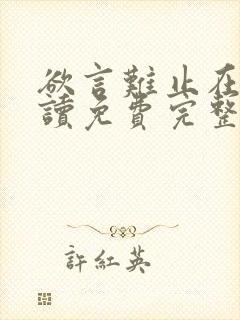 欲言難止在
讀免費完整
許紅英